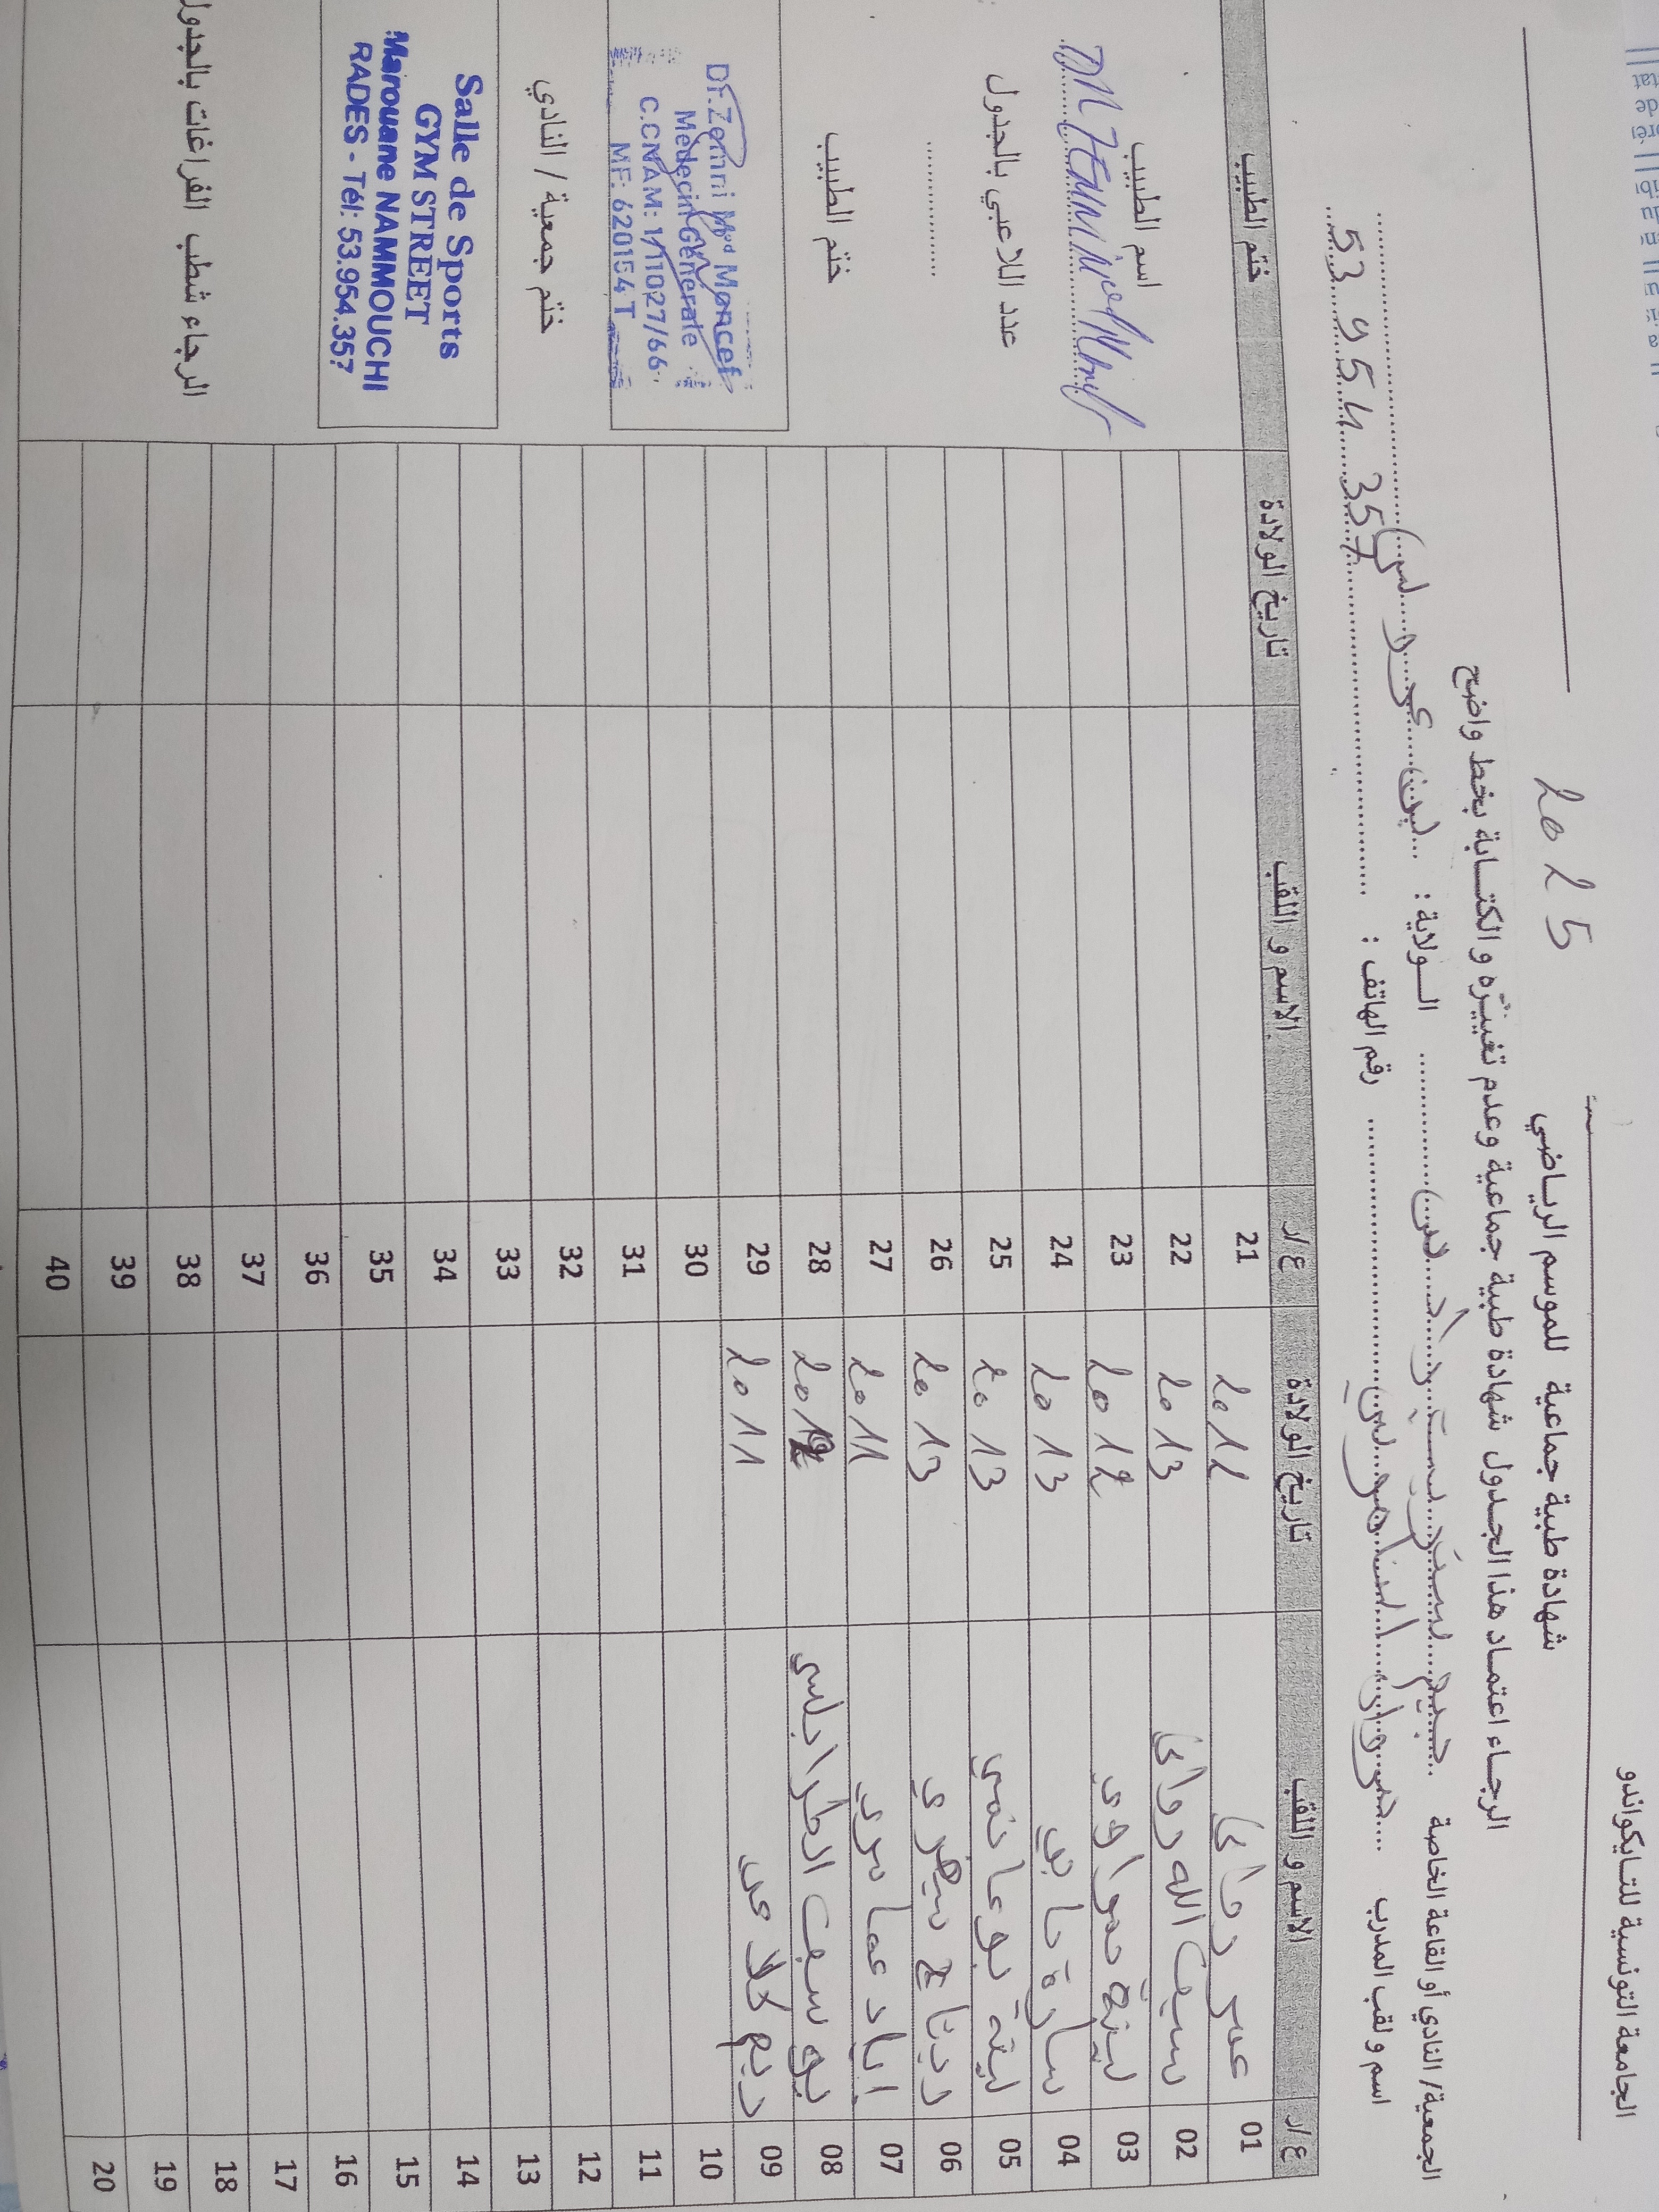 الجامعة التونسية للتايكواندو
شهادة طبية جماعية للموسم الرياضي 2025
الرجاء اعتماد هذا الجدول شهادة طبية جماعية وعدم تغييره و الكتابة بخط واضح
الجمعية/ النادي أو القاعة الخاصة جيم ستريت رادس الولاية : بن عروس
اسم و لقب المدرب مروان النموشي رقم الهاتف : 53 954 357
ع/ر الاسم و اللقب تاريخ الولادة ع/ر الاسم و اللقب تاريخ الولادة ختم الطبيب
01 عمر دواي 2012 21
02 سيف الله دواي 2013 22
03 لينة حمراوي 2012 23
04 سارة 2013 24
05 لينة بوعا 2013 25
06 ريتاج 2013 26
07 اياد عمامري 2011 27
08 يوسف الطرابلسي 28
09 ريم 2011 29
10 30
11 31
12 32
13 33
14 34
15 35
16 36
17 37
18 38
19 39
20 40
اسم الطبيب
عدد اللاعبي بالجدول
ختم الطبيب
Dr. Zemni Med Moncef
Médecin Generale
C.CNAM: 1/11027/66
MF: 620154 T
ختم جمعية / النادي
Salle de Sports
GYM STREET
Marouane NAMMOUCHI
RADES - Tél: 53.954.357
الرجاء شطب الفراغات بالجدول